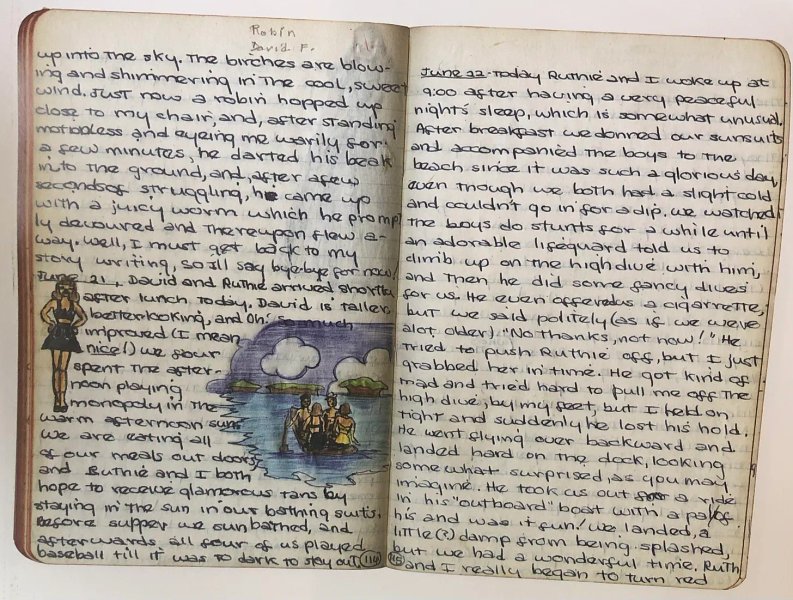 Robin
David F.
up into the sky. The birches are blow-
ing and shimmering in the cool, sweet
wind. Just now a robin hopped up
close to my chair, and, after standing
motionless and eyeing me warily for
a few minutes, he darted his beak
into the ground, and, after a few
seconds of struggling, he came up
with a juicy worm which he prompt-
ly devoured and thereupon flew a-
way. Well, I must get back to my
story writing, so I'll say bye-bye for now!
June 21, David and Ruthie arrived shortly
after lunch today. David is taller,
better looking, and Oh! so much
improved (I mean
nice!) We four
spent the after-
noon playing
monopoly in the
warm afternoon sun.
We are eating all
of our meals out doors
and Ruthie and I both
hope to receive glamorous tans by
staying in the sun in our bathing suits.
Before supper we sunbathed, and
afterwards all four of us played
baseball till it was to dark to stay out.
114
June 22-Today Ruthie and I woke up at
9:00 after having a very peaceful
night's sleep, which is somewhat unusual.
After breakfast we donned our sunsuits
and accompanied the boys to the
beach since it was such a glorious day,
even though we both had a slight cold
and couldn't go in for a dip. We watched
the boys do stunts for a while until
an adorable lifeguard told us to
climb up on the high dive with him,
and then he did some fancy dives
for us. He even offered us a cigarrette,
but we said politely (as if we were
alot older) "No thanks, not now!" He
tried to push Ruthie off, but I just
grabbed her in time. He got kind of
mad and tried hard to pull me off the
high dive, by my feet, but I held on
tight and suddenly he lost his hold.
He went flying over backward and
landed hard on the dock, looking
some what surprised, as you may
imagine. He took us out for a ride
in his "outboard" boat with a pal of
his and was it fun! We landed, a
little (?) damp from being splashed,
but we had a wonderful time. Ruth
and I really began to turn red
115